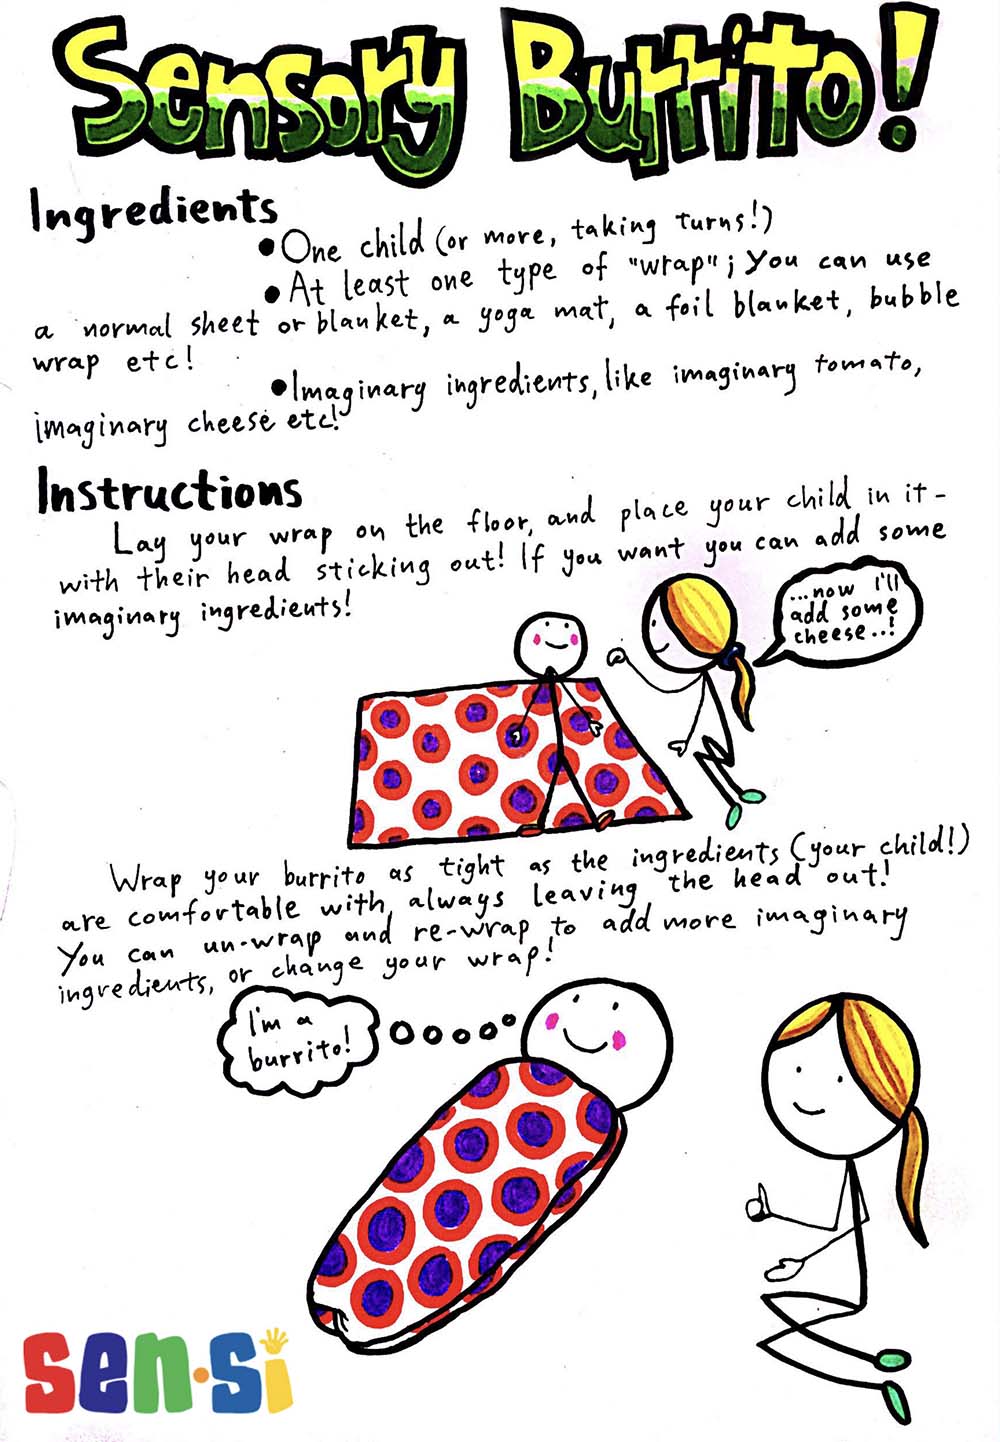 Sensory Burrito!
Ingredients
• One child (or more, taking turns!)
• At least one type of "wrap"; You can use
a normal sheet or blanket, a yoga mat, a foil blanket, bubble
wrap etc!
• Imaginary ingredients, like imaginary tomato,
imaginary cheese etc!
Instructions
Lay your wrap on the floor, and place your child in it -
with their head sticking out! If you want you can add some
imaginary ingredients!
...now I'll
add some
cheese..!
Wrap your burrito as tight as the ingredients (your child!)
are comfortable with, always leaving the head out!
You can un-wrap and re-wrap to add more imaginary
ingredients, or change your wrap!
I'm a
burrito!
sen·si